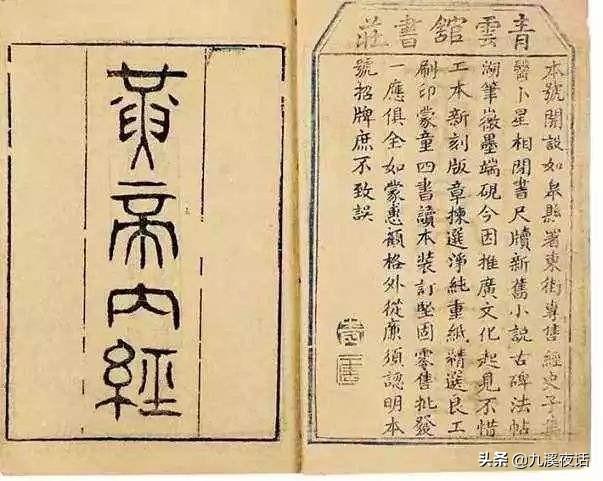 青雲舘書莊
本號開設如皋縣署東街專售經史子集
醫卜星相閒書尺牘新舊小說古碑法帖
湖筆徽墨端硯今因推廣文化起見不惜
工本新刻版章揀選淨純重紙精選良工
刷印蒙童四書讀本裝訂堅固零售批發
一應俱全如蒙惠顧格外從廉須認明本
號招牌庶不致誤
黃帝內經
头条 @九溪夜话